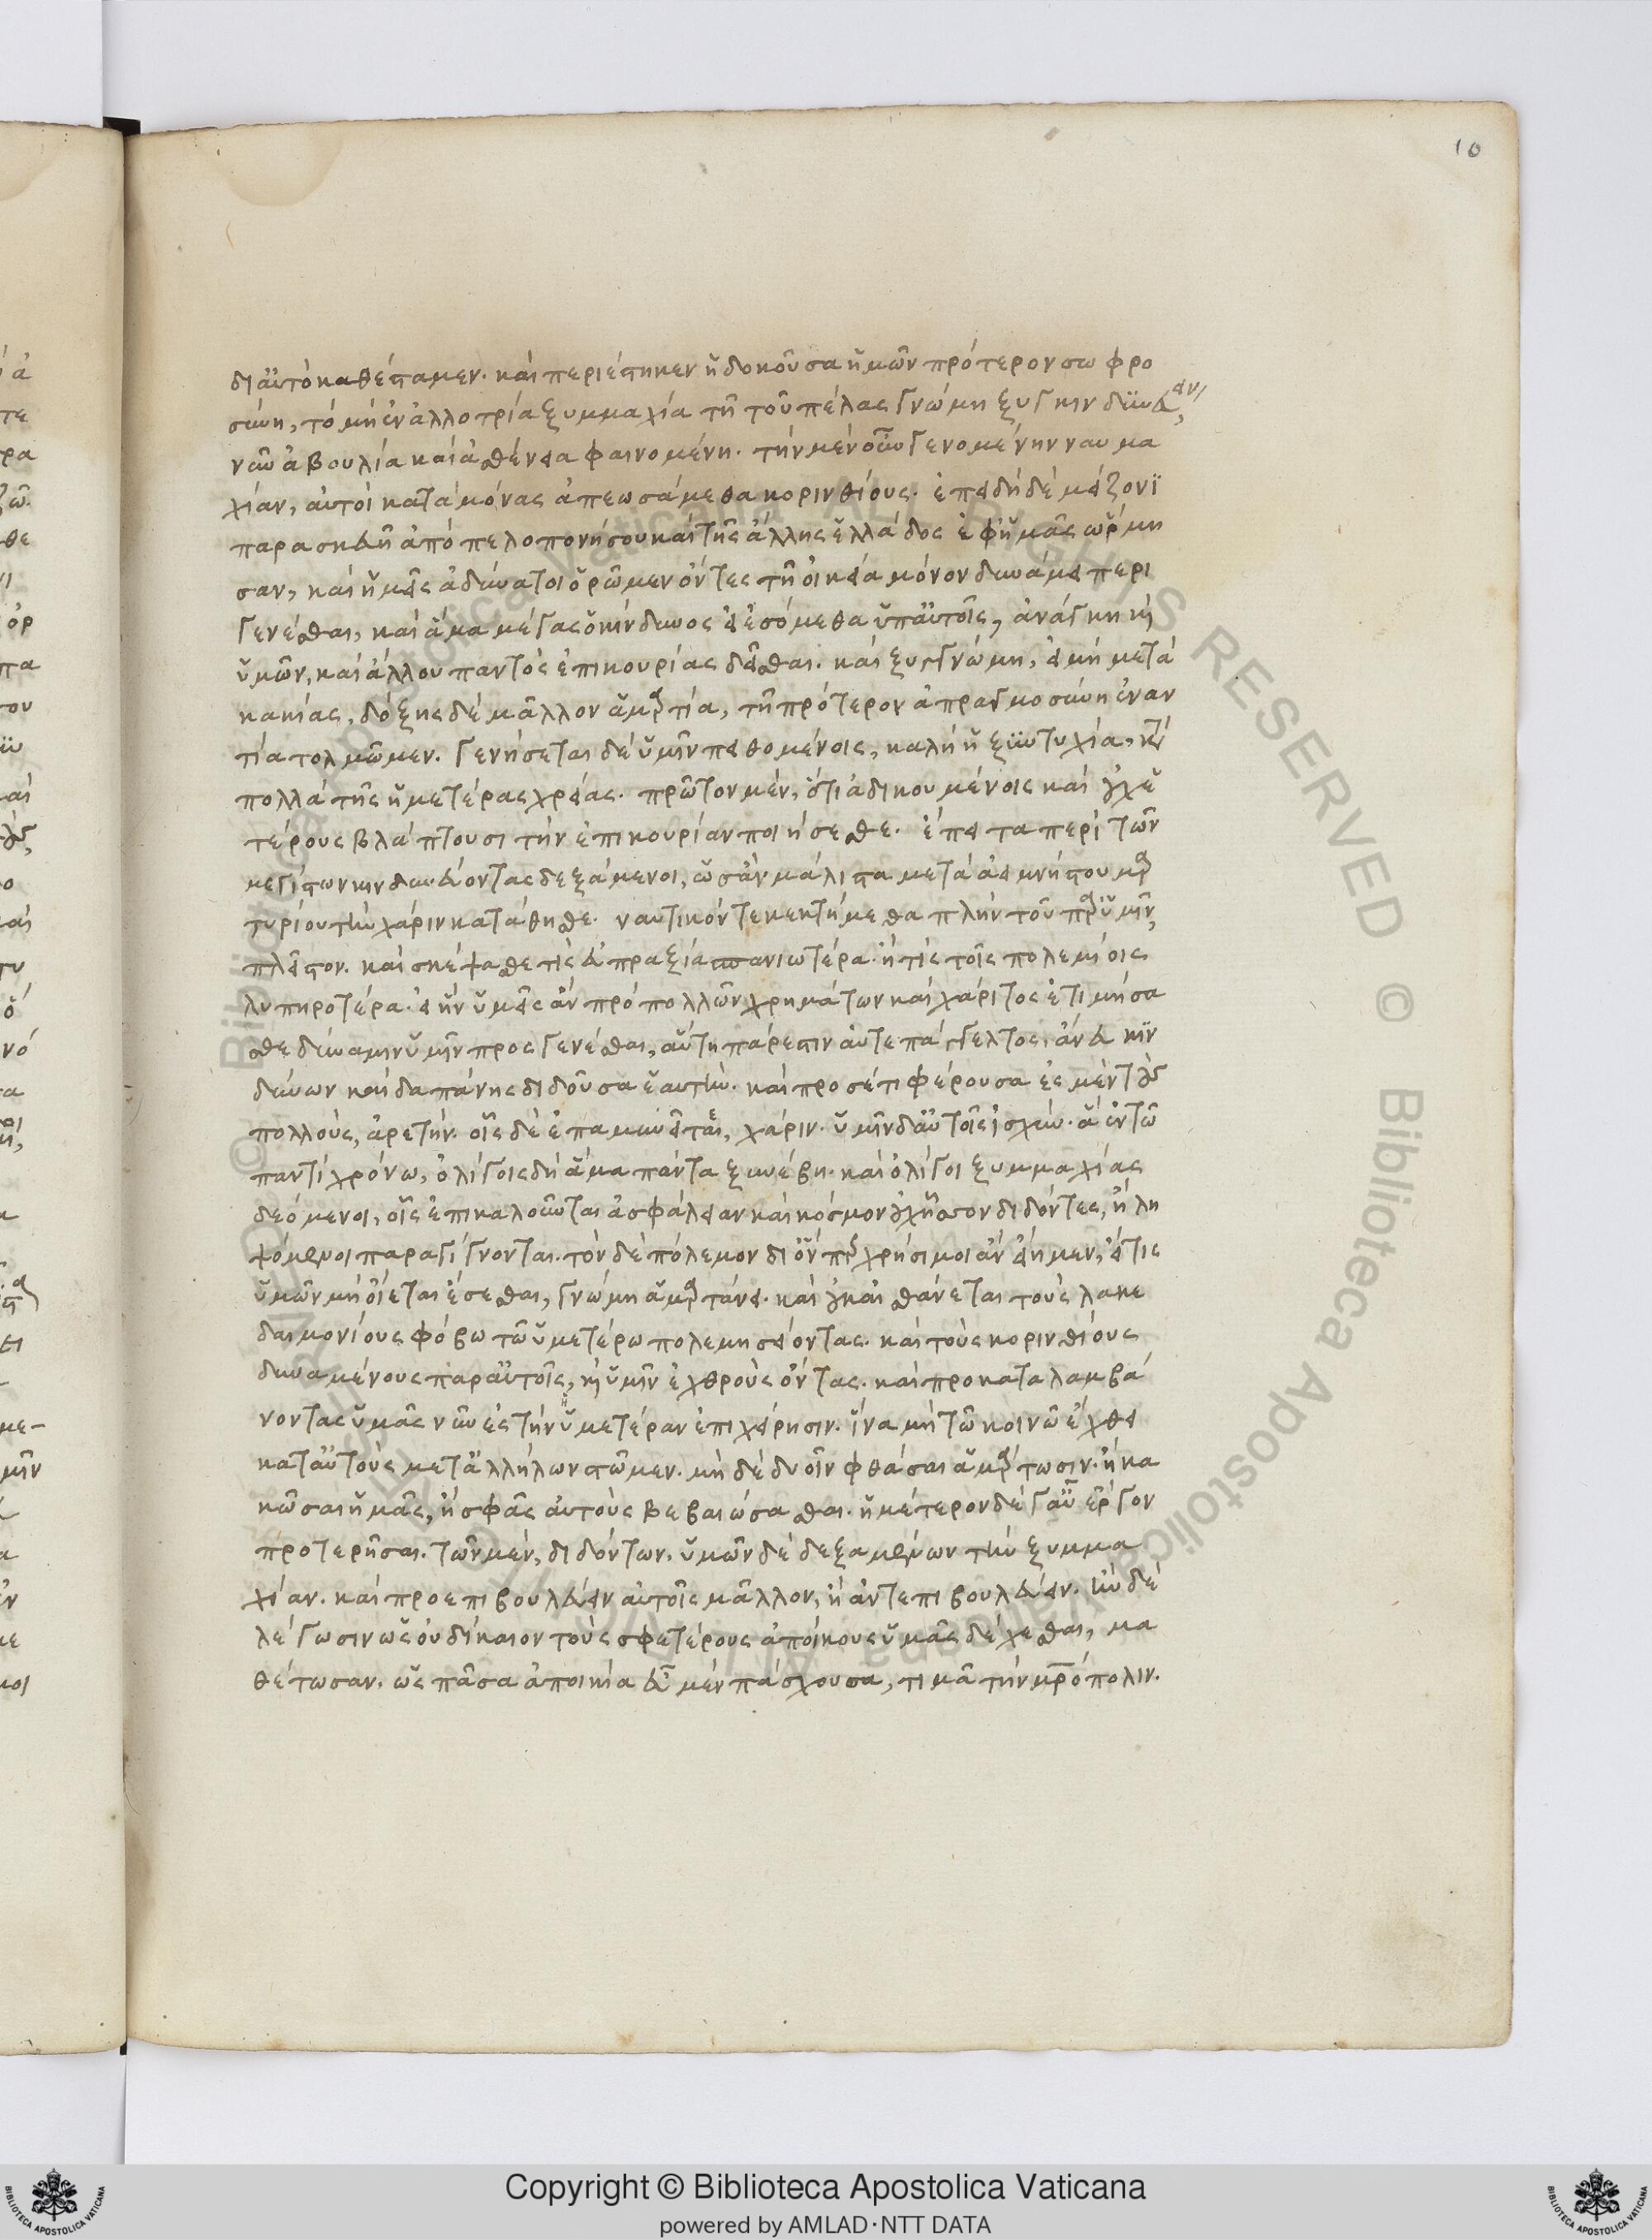 10
δι' αὐτὸ καθέσταμεν. καὶ περιέστηκεν ἡ δοκοῦσα ἡμῶν πρότερον σωφρο
σύνη, τὸ μὴ ἐν ἀλλοτρία ξυμμαχία τῆ τοῦ πέλας γνώμη ξυγκινδυνεύειν,
νῦν ἀβουλία καὶ ἀσθένεια φαινομένη. τὴν μὲν οὖν γενομένην ναυμα
χίαν, αὐτοὶ κατὰ μόνας ἀπεωσάμεθα κορινθίους. ἐπειδὴ δὲ μείζονι
παρασκευῆ ἀπὸ πελοπονήσου καὶ τῆς ἄλλης ἑλλάδος ἐφ' ἡμᾶς ὥρμη
σαν, καὶ ἡμεῖς ἀδύνατοι ὁρῶμεν ὄντες τῆ οἰκεία μόνον δυνάμει περι
γενέσθαι, καὶ ἅμα μέγας ὁ κίνδυνος εἰ ἐσόμεθα ὑπ' αὐτοῖς, ἀνάγκη καὶ
ὑμῶν, καὶ ἄλλου παντὸς ἐπικουρίας δεῖσθαι. καὶ ξυγγνώμη, εἰ μὴ μετὰ
κακίας, δόξης δὲ μᾶλλον ἁμαρτία, τῆ πρότερον ἀπραγμοσύνη ἐναν
τία τολμῶμεν. γενήσεται δὲ ὑμῖν πειθομένοις, καλὴ ἡ ξυντυχία, κατὰ
πολλὰ τῆς ἡμετέρας χρείας. πρῶτον μὲν, ὅτι ἀδικουμένοις καὶ οὐχ ἑ
τέρους βλάπτουσι τὴν ἐπικουρίαν ποιήσεσθε. ἔπειτα περὶ τῶν
μεγίστων κινδυνεύοντας δεξάμενοι, ὡς ἂν μάλιστα μετὰ ἀειμνήστου μαρ
τυρίου τὴν χάριν κατάθησθε. ναυτικόν τε κεκτήμεθα πλὴν τοῦ παρ' ὑμῖν,
πλεῖστον. καὶ σκέψασθε τίς εὐπραξία σπανιωτέρα. ἢ τίς τοῖς πολεμίοις
λυπηροτέρα. εἰ ἣν ὑμεῖς ἂν πρὸ πολλῶν χρημάτων καὶ χάριτος ἐτιμήσα
σθε δύναμιν ὑμῖν προσγενέσθαι, αὕτη πάρεστιν αὐτεπάγγελτος, ἄνευ κιν
δύνων καὶ δαπάνης διδοῦσα ἑαυτήν. καὶ προσέτι φέρουσα ἐς μὲν τοὺς
πολλοὺς, ἀρετήν. οἷς δὲ ἐπαμυνεῖται, χάριν. ὑμῖν δ' αὐτοῖς ἰσχύν. ἃ ἐν τῶ
παντὶ χρόνω, ὀλίγοις δὴ ἅμα πάντα ξυνέβη. καὶ ὀλίγοι ξυμμαχίας
δεόμενοι, οἷς ἐπικαλοῦνται ἀσφάλειαν καὶ κόσμον οὐχ ἧσσον διδόντες, ἢ λη
ψόμενοι παραγίγνονται. τὸν δὲ πόλεμον δι' ὅν περ χρήσιμοι ἂν εἴημεν, εἴ τις
ὑμῶν μὴ οἴεται ἔσεσθαι, γνώμη ἁμαρτάνει. καὶ οὐκ αἰσθάνεται τοὺς λακε
δαιμονίους φόβω τῶ ὑμετέρω πολεμησείοντας. καὶ τοὺς κορινθίους
δυναμένους παρ' αὐτοῖς, καὶ ὑμῖν ἐχθροὺς ὄντας. καὶ προκαταλαμβά
νοντας ὑμᾶς νῦν ἐς τὴν ὑμετέραν ἐπιχείρησιν. ἵνα μὴ τῶ κοινῶ ἔχθει
κατ' αὐτοὺς μετ' ἀλλήλων στῶμεν. μὴ δὲ δυοῖν φθάσαι ἁμάρτωσιν. ἢ κα
κῶσαι ἡμᾶς, ἢ σφᾶς αὐτοὺς βεβαιώσασθαι. ἡμέτερον δέ γ' αὖ ἔργον
προτερῆσαι. τῶν μὲν, διδόντων. ὑμῶν δὲ δεξαμένων τὴν ξυμμα
χίαν. καὶ προεπιβουλεύειν αὐτοῖς μᾶλλον, ἢ ἀντεπιβουλεύειν. ἢν δὲ
λέγωσιν ὡς οὐ δίκαιον τοὺς σφετέρους ἀποίκους ὑμᾶς δέχεσθαι, μα
θέτωσαν. ὡς πᾶσα ἀποικία εὖ μὲν πάσχουσα, τιμᾶ τὴν μητρόπολιν.
Copyright © Biblioteca Apostolica Vaticana
powered by AMLAD·NTT DATA